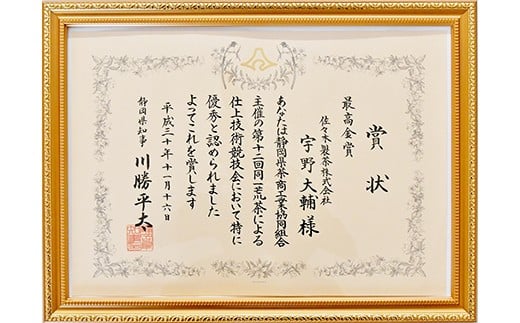 賞状
最高金賞
佐々木製茶株式会社
宇野大輔様
あなたは静岡県茶商工業協同組合
主催の第十二回同一荒茶による
仕上技術競技会において特に
優秀と認められました
よってこれを賞します
平成三十年十一月十六日
静岡県知事 川勝平太